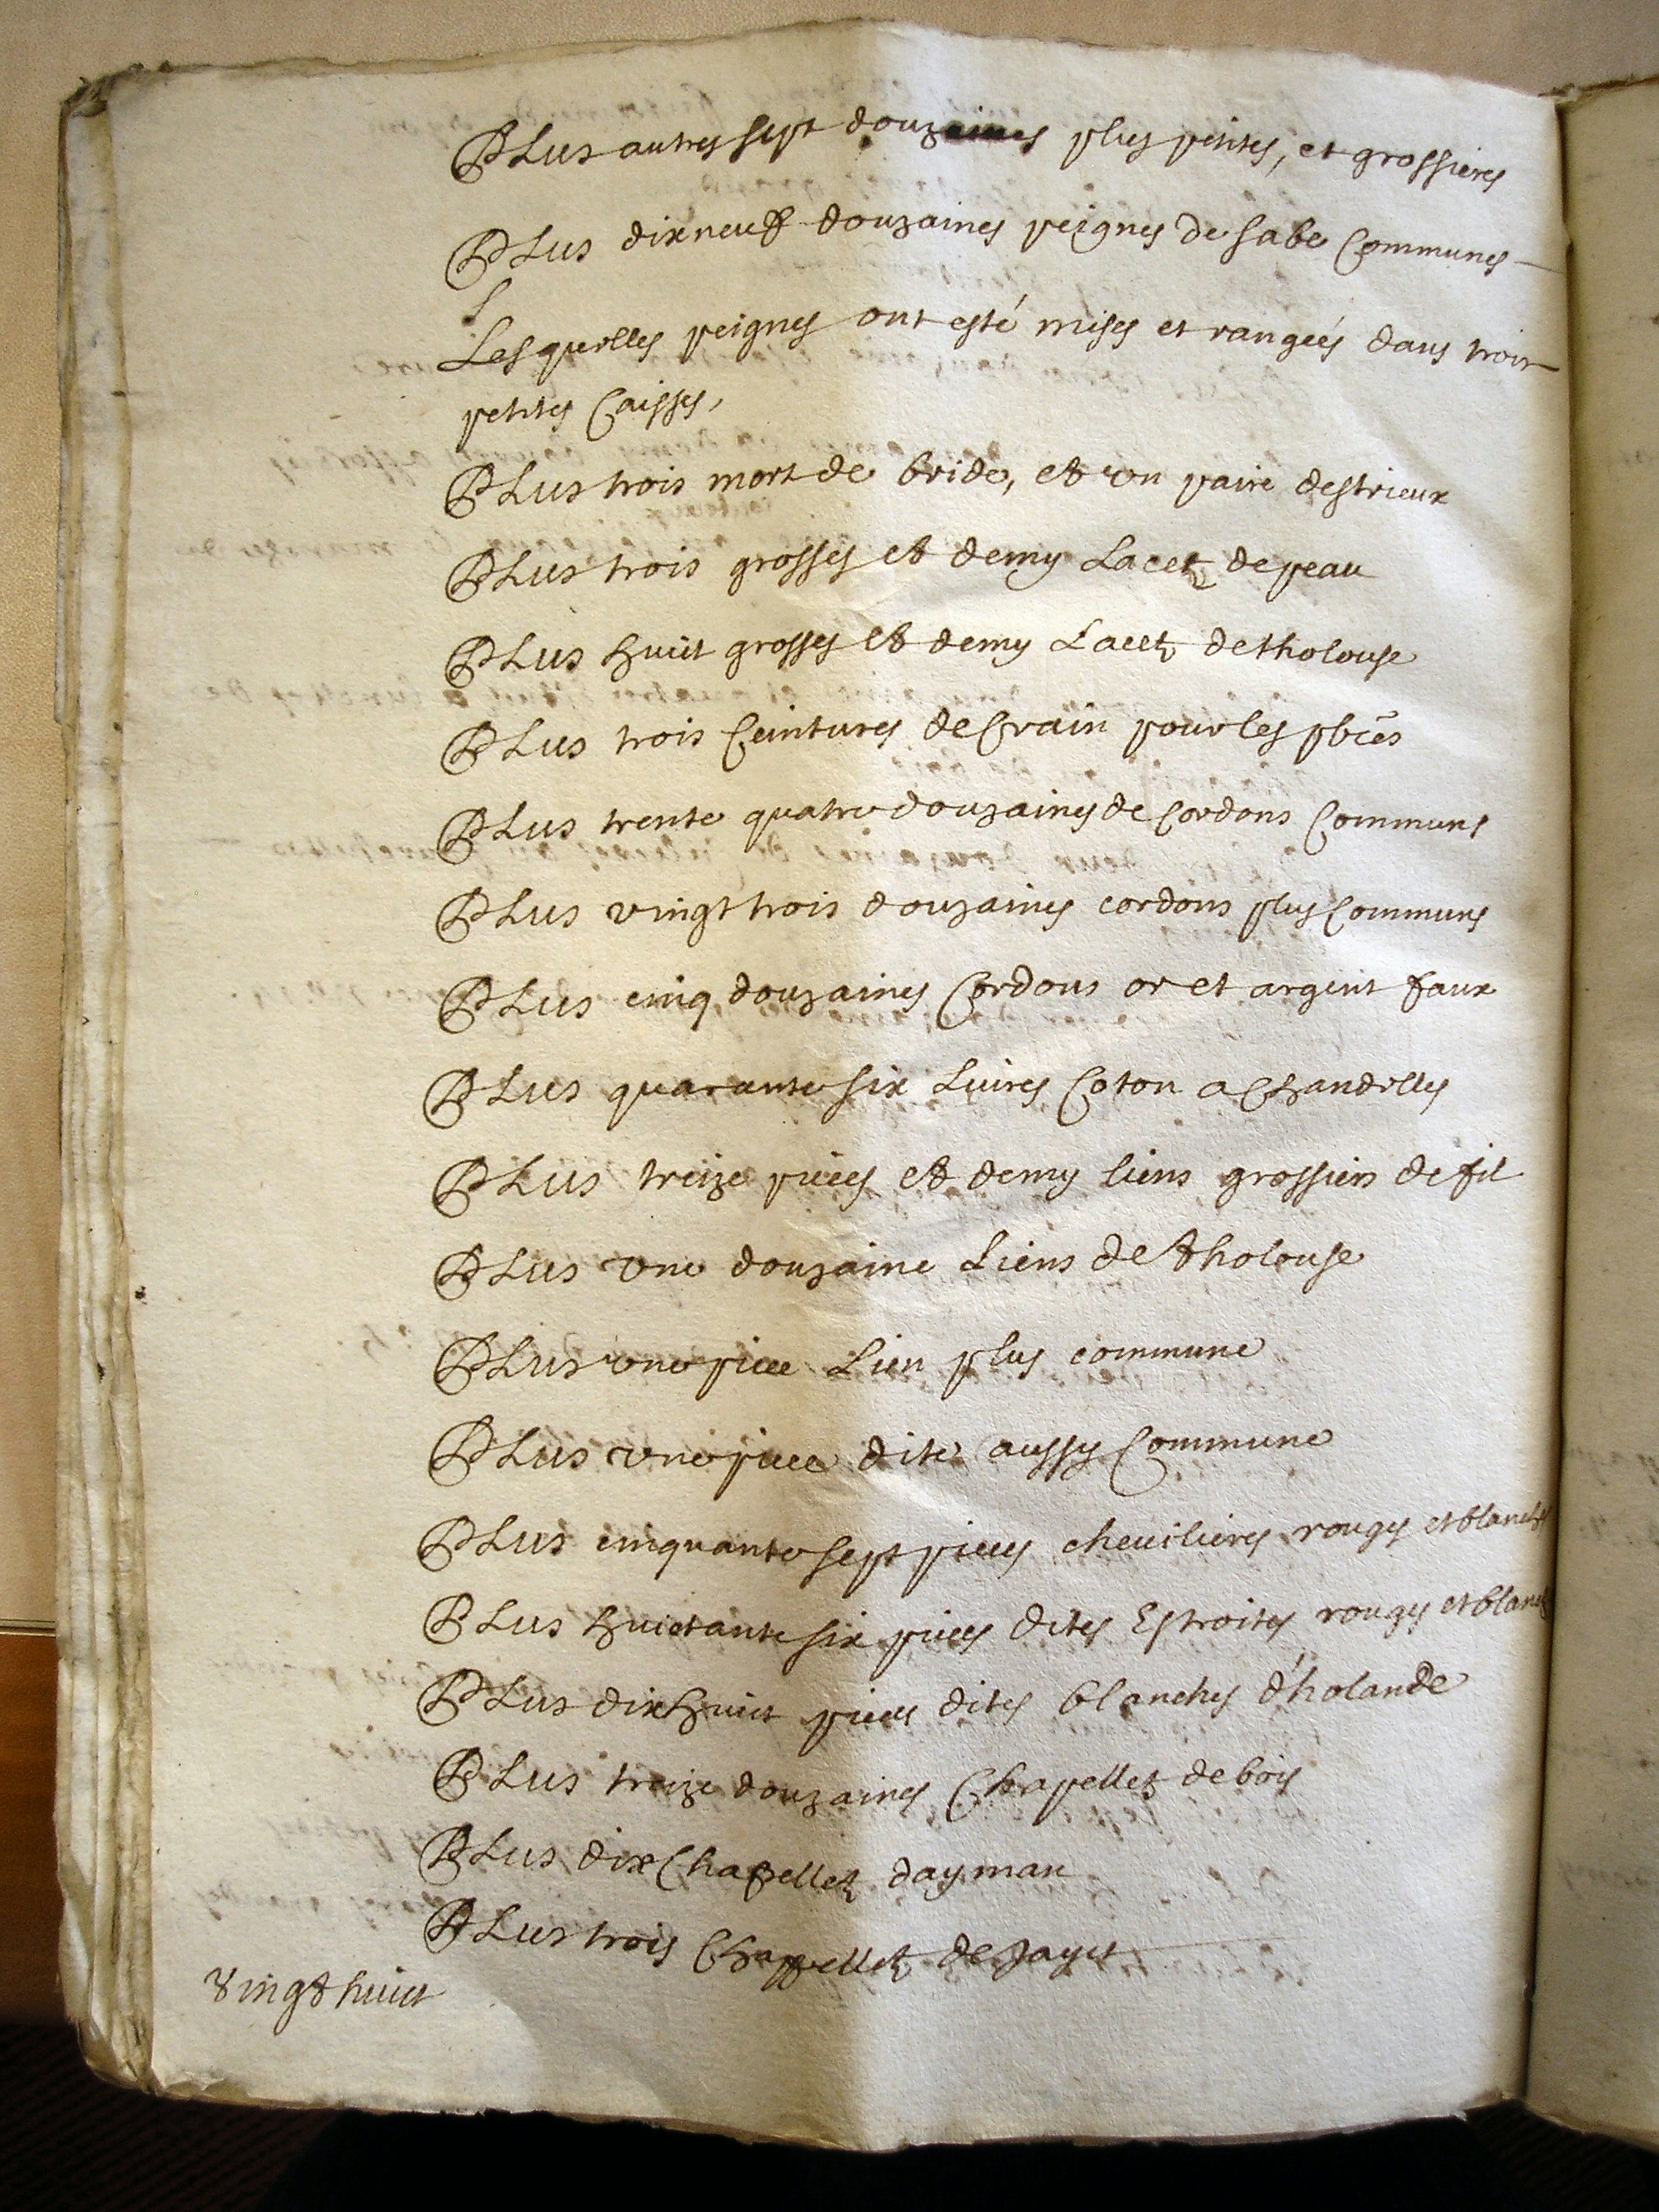 PLus autres sept douzaines plus petites, et grossieres
PLus dix neuf douzaines peignes de sabe Communes
Lesquelles peignes ont esté mises et rangeés dans trois
petites Caisses,
PLus trois mort de bride, et un paire destrieux
PLus trois grosses et demy Lacetz de peau
PLus huict grosses et demy Lacetz de tholouse
PLus trois Ceintures de Crain pour les pbr̃es
PLus trente quatre douzaines de Cordons Communs
PLus vingt trois douzaines cordons plus Communs
PLus cinq douzaines Cordons or et argent faux
PLus quarante six Livres Coton a Chandelles
PLus treize pieces et demy liens grossiers de fil
PLus une douzaine Liens de tholouse
PLus une piece Lien plus commune
PLus une piece dite aussy Commune
PLus cinquante sept pieces chevilieres rouges et blanches
PLus huictante six pieces dites Estroites rouges et blanch
PLus dix huict pieces dites blanches d'holande
PLus treize douzaines Chapelletz de bois
PLus dix Chapelletz dayman
PLus trois Chappelletz de Jayet
Vingt huict